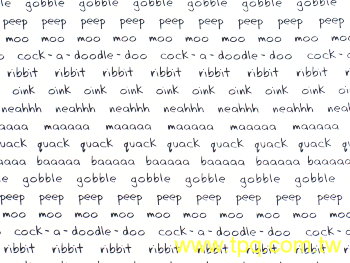 le gobble gobble gobble gobble gobble
peep peep peep peep peep peep peep peep
moo moo moo moo moo moo moo moo moo
o cock-a-doodle-doo cock-a-doodle-doo cock-a
ribbit ribbit ribbit ribbit ribbit ribbit ribbit
oink oink oink oink oink oink oink oink oi
neahhh neahhh neahhh neahhh neahhh neahhh
aaaaa maaaaa maaaaa maaaaa maaaaa
uack quack quack quack quack quack quack quack
baaaaa baaaaa baaaaa baaaaa baaaaa baaaaa
gobble gobble gobble gobble gobble
peep peep peep peep peep peep peep peep
moo moo moo moo moo moo moo moo moo
o cock-a-doodle-doo cock-a-doodle-doo cock-a
ribbit ribbit ribbit ribbit ribbit ribbit ribbit
www.tpg.com.tw